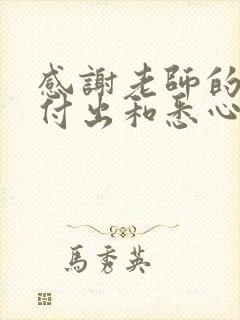 感謝老師的
付出和悉心
馬秀英